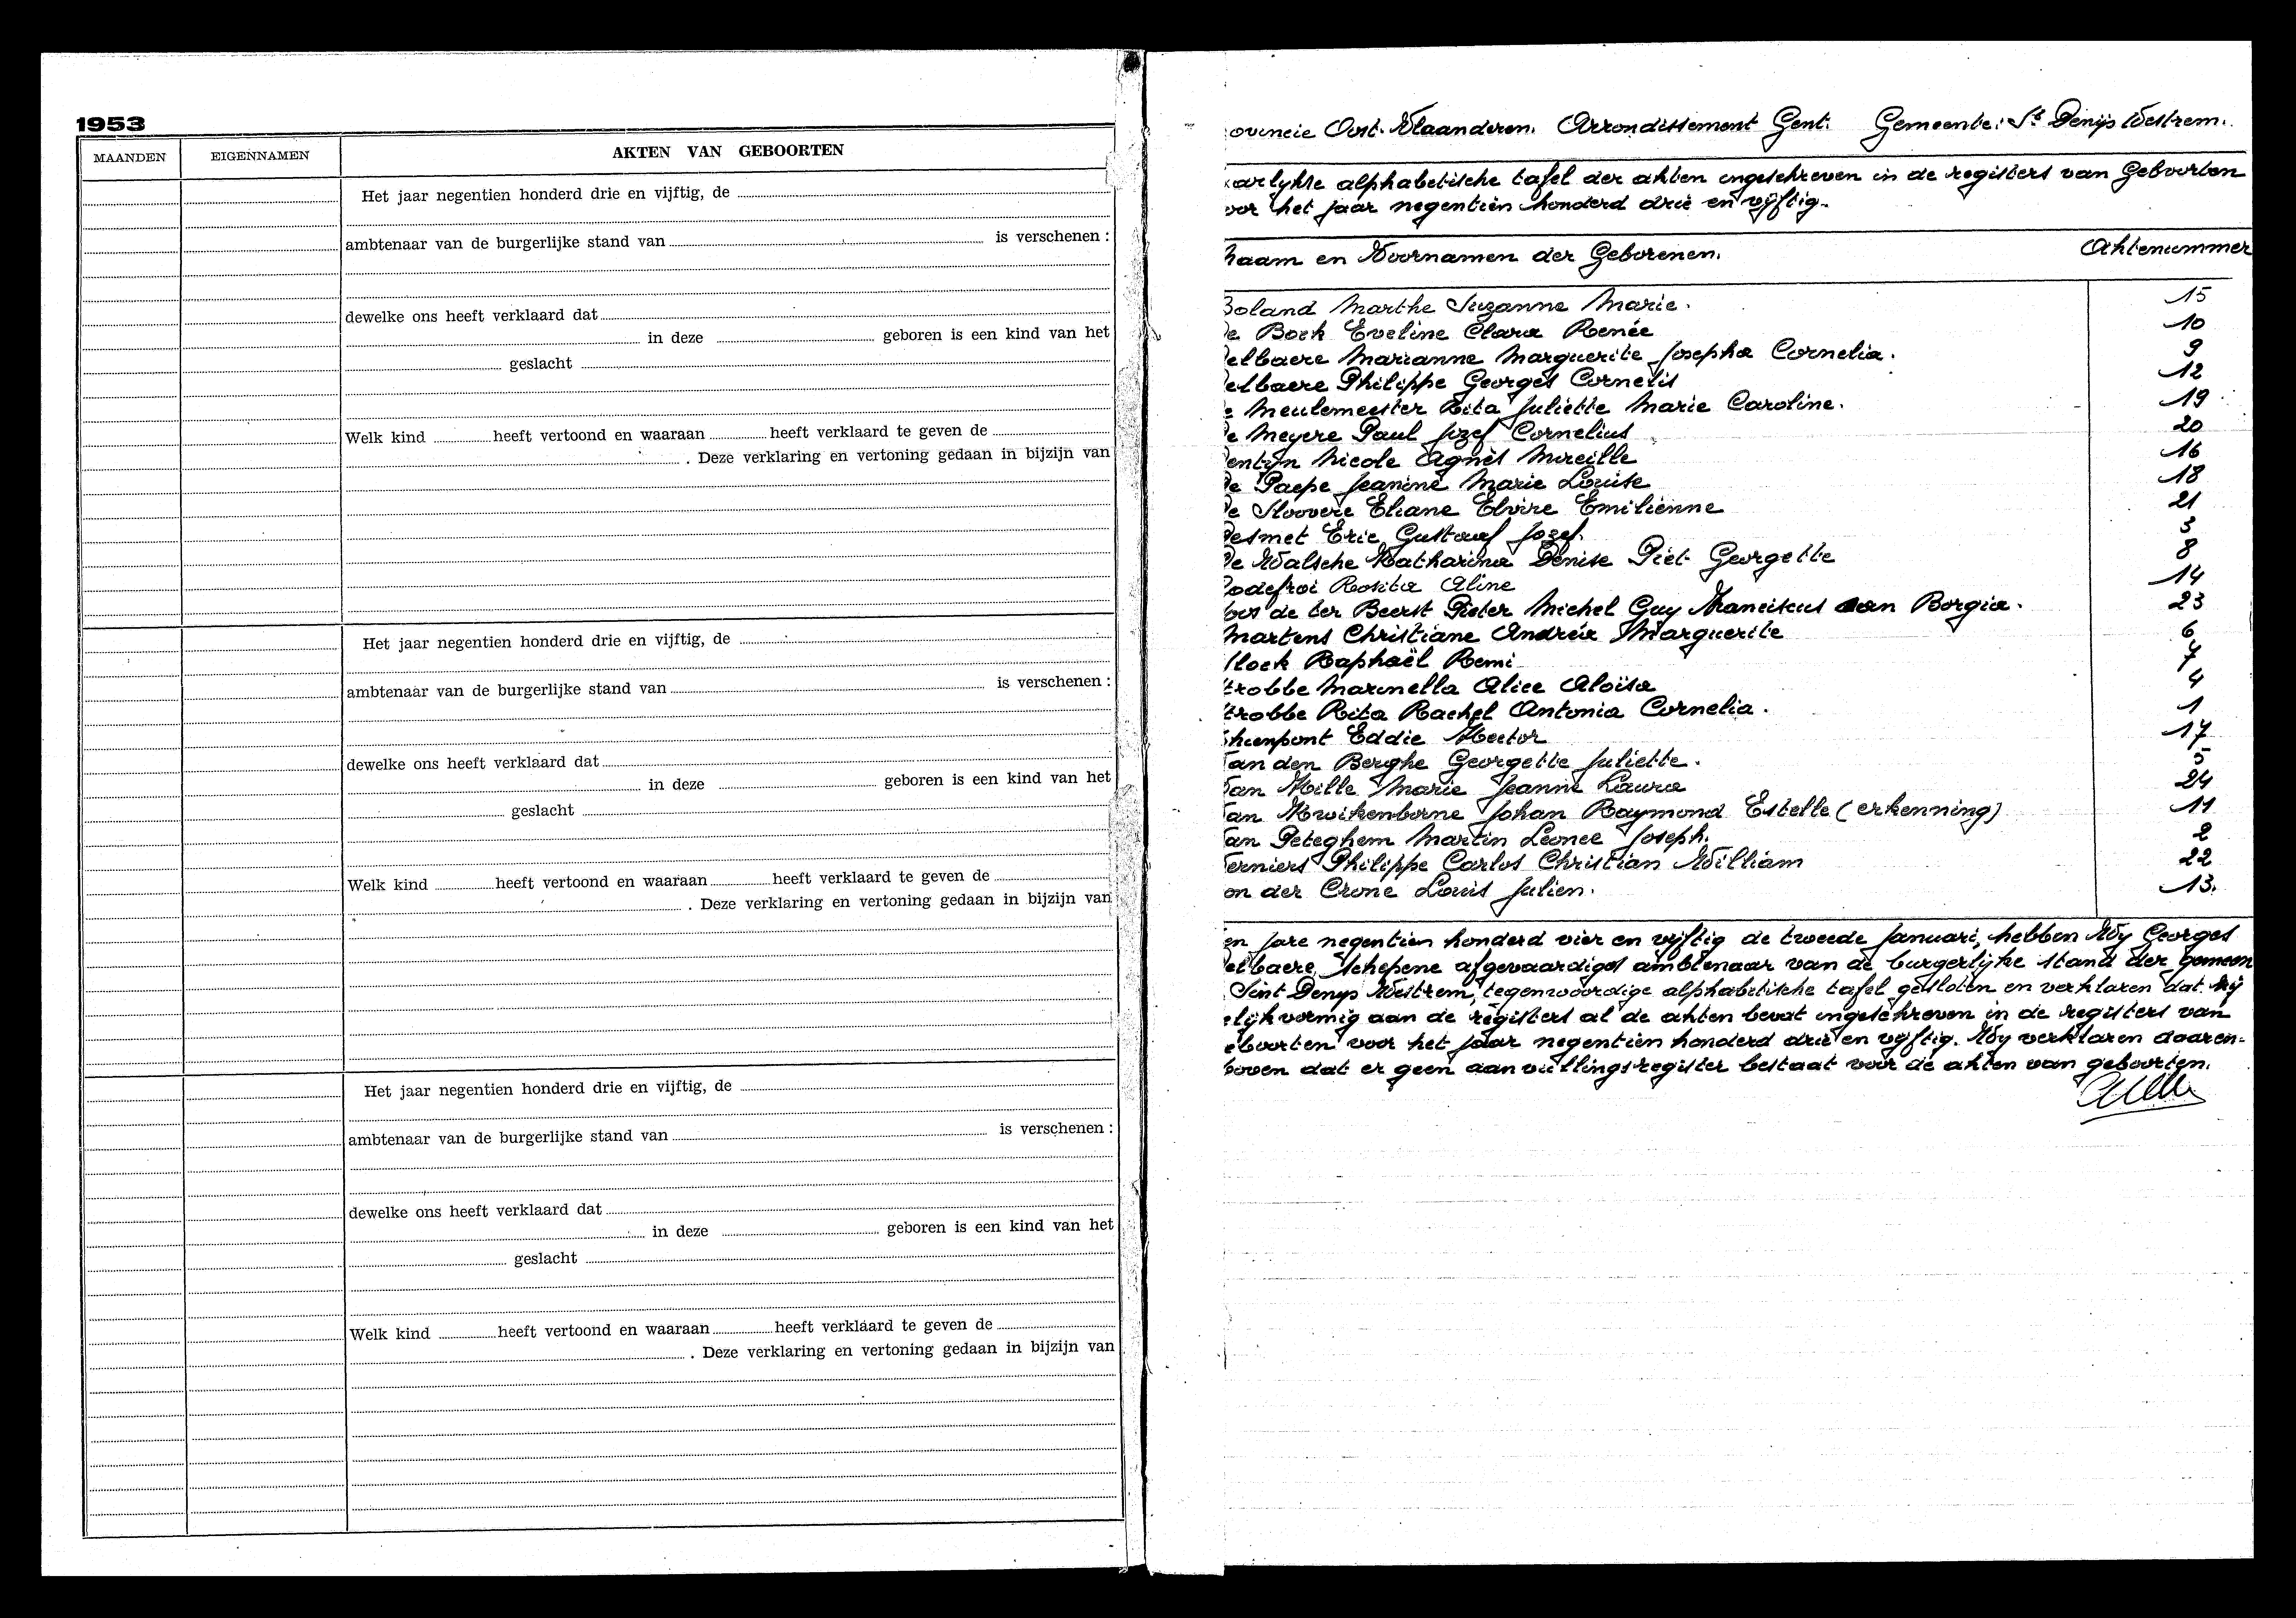 1953
MAANDEN EIGENNAMEN AKTEN VAN GEBOORTEN
Het jaar negentien honderd drie en vijftig, de
ambtenaar van de burgerlijke stand van is verschenen :
dewelke ons heeft verklaard dat
in deze geboren is een kind van het
geslacht
Welk kind heeft vertoond en waaraan heeft verklaard te geven de
. Deze verklaring en vertoning gedaan in bijzijn van
Het jaar negentien honderd drie en vijftig, de
ambtenaar van de burgerlijke stand van is verschenen :
dewelke ons heeft verklaard dat
in deze geboren is een kind van het
geslacht
Welk kind heeft vertoond en waaraan heeft verklaard te geven de
. Deze verklaring en vertoning gedaan in bijzijn van
Het jaar negentien honderd drie en vijftig, de
ambtenaar van de burgerlijke stand van is verschenen :
dewelke ons heeft verklaard dat
in deze geboren is een kind van het
geslacht
Welk kind heeft vertoond en waaraan heeft verklaard te geven de
. Deze verklaring en vertoning gedaan in bijzijn van
ovincie Oost-Vlaanderen. Arrondissement Gent. Gemeente: St Denijs Westrem.
arlykse alphabetische tafel der akten ingeschreven in de registers van Geboorten
oor het jaar negentien honderd drie en vijftig.
Naam en Voornamen der Geborenen. Aktenummer
Boland Marthe Suzanne Marie. 15
De Bock Eveline Clara Renée 10
elbaere Marianne Marguerite Josepha Cornelia. 9
elbaere Philippe Georges Cornelis 12
e Meulemeester Rita Juliette Marie Caroline. 19
e Meyere Paul Jozef Cornelius 20
entyn Nicole Agnès Mireille 16
De Paepe Jeanine Marie Louise 18
De Stoovere Eliane Elvire Emilienne 21
Desmet Eric Gustaaf Jozef. 3
De Walsche Katharina Denise Piet Georgette 8
odefroi Rosita Aline 14
oos de ter Beerst Pieter Michel Guy Franciscus van Borgia. 23
Martens Christiane Andréa Marguerite 6
lock Raphaël Remi 7
trobbe Marinella Alice Aloïsa 4
trobbe Rita Rachel Antonia Cornelia. 1
hienpont Eddie Hector 17
an den Berghe Georgette Juliette. 5
an Hille Marie Jeanne Laura 24
an Kwikenborne Johan Raymond Estelle (erkenning) 11
an Peteghem Martin Leonce Joseph. 2
erniers Philippe Carlos Christian William 22
on der Crone Louis Julien. 13.
en jare negentien honderd vier en vijftig de tweede Januari, hebben Wy Georges
elbaere, Schepene afgevaardigd ambtenaar van de burgerlijke stand der gemeen
Sint Denys Westrem, tegenwoordige alphabetische tafel gesloten en verklaren dat hij
elijkvormig aan de registers al de akten bevat ingeschreven in de registers van
eboorten voor het jaar negentien honderd drie en vijftig. Wy verklaren daaren-
boven dat er geen aanvullingsregister bestaat voor de akten van geboorten.